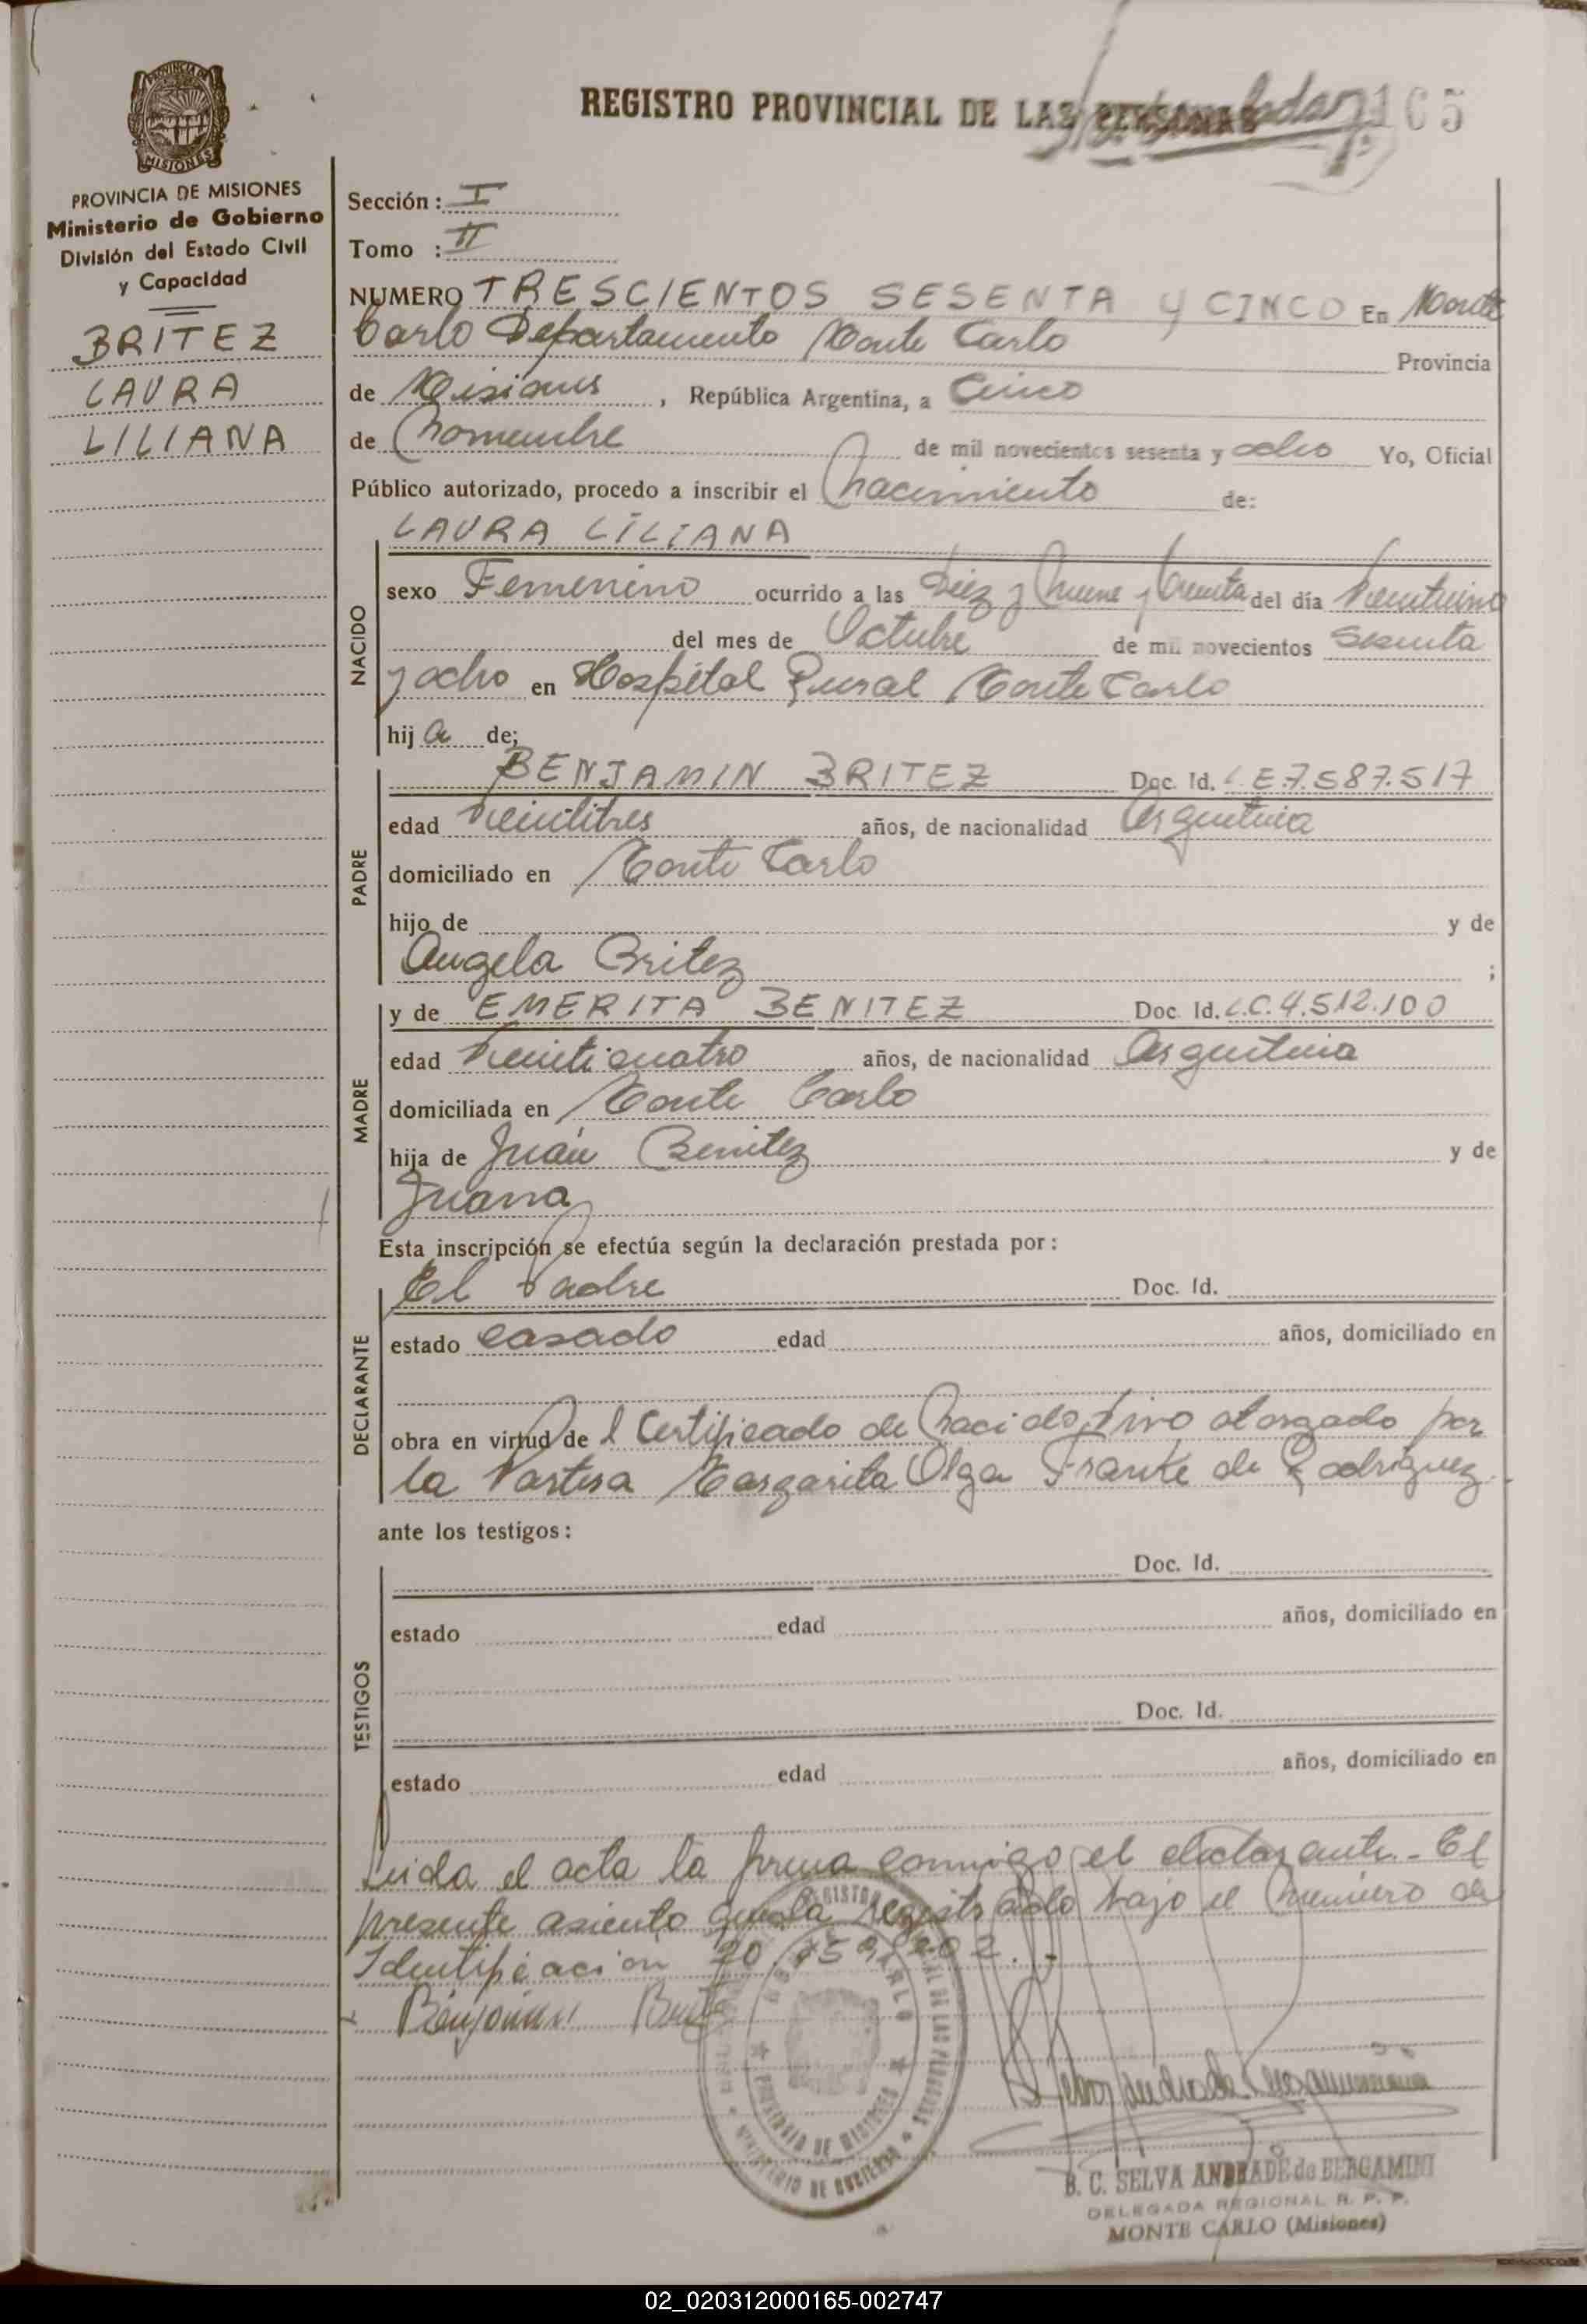 REGISTRO PROVINCIAL DE LAS PERSONAS
165
PROVINCIA DE MISIONES
MISIONES
PROVINCIA DE MISIONES
Ministerio de Gobierno
División del Estado Civil
y Capacidad
BRITEZ
LAURA
LILIANA
Sección : I
Tomo : II
NUMERO TRESCIENTOS SESENTA Y CINCO En Monte
Carlo Departamento Monte Carlo Provincia
de Misiones, República Argentina, a Cinco
de Noviembre de mil novecientos sesenta y ocho Yo, Oficial
Público autorizado, procedo a inscribir el Nacimiento de:
LAURA LILIANA
NACIDO
sexo Femenino ocurrido a las Diez y Nueve y treinta del día Veintiuno
del mes de Octubre de mil novecientos Sesenta
y ocho en Hospital Rural Monte Carlo
hij a de;
PADRE
BENJAMIN BRITEZ Doc. Id. L.E.7.587.517
edad Veintitres años, de nacionalidad Argentina
domiciliado en Monte Carlo
hijo de y de
Angela Britez ;
MADRE
y de EMERITA BENITEZ Doc. Id. L.C.4.512.100
edad Veinticuatro años, de nacionalidad Argentina
domiciliada en Monte Carlo
hija de Juan Benitez y de
Juana
Esta inscripción se efectúa según la declaración prestada por :
DECLARANTE
El Padre Doc. Id.
estado casado edad años, domiciliado en
obra en virtud de l Certificado de Nacido Vivo otorgado por
la Partera Margarita Olga Franke de Rodriguez
ante los testigos :
TESTIGOS
Doc. Id.
estado edad años, domiciliado en
Doc. Id.
estado edad años, domiciliado en
Leida el acta la firma conmigo el declarante.- El
presente asiento queda registrado bajo el Numero de
Identificacion 20.
Benjamin Britez
PROVINCIA DE MISIONES
MINISTERIO DE GOBIERNO
B. C. SELVA ANDRADE de BERGAMINI
DELEGADA REGIONAL R. P. P.
MONTE CARLO (Misiones)
02_020312000165-002747